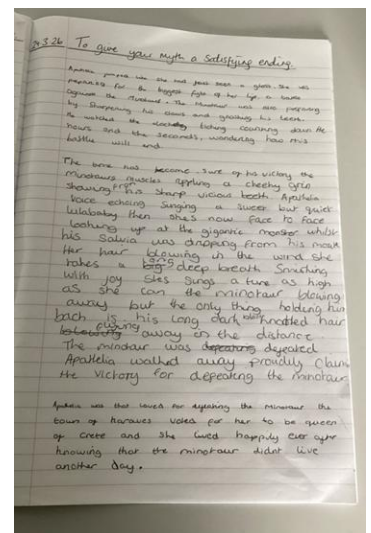 24.3.26 To give your myth a satisfying ending.
Apathelia jumped like she had just seen a ghost she was
preparing for the biggest fight of her life, a battle
against the Minotaur. The Minotaur was also preparing
by Sharpening his claws and gnashing his teeth.
He watched the clock ticking counting down the
hours and the seconds, wondering how this
battle will end.
The time has become. Sure of his victory the
minotaurs muscles rippling a cheeky grin
showing from his sharp vicious teeth Apathelia
voice echoing singing a sweet but quiet
lulababy then shes now face to face
looking up at the gigantic monster whilst
his Salvia was dropping from his mouth
Her hair blowing in the wind she
takes a big deep breath Smirking
with joy Shes Sings a tune as high
as she can the minotaur blowing
away but the only thing holding him
back is his long dark knotted hair
blowing away in the distance.
The mindaur was depeating depeated
Apathelia walked away proudly Claim
the victory for depeating the minotaur
Apathelia was that loved for depeating the minotaur the
town of voted for her to be queen
of crete and she lived happily ever after
knowing that the minotaur didnt live
another day.